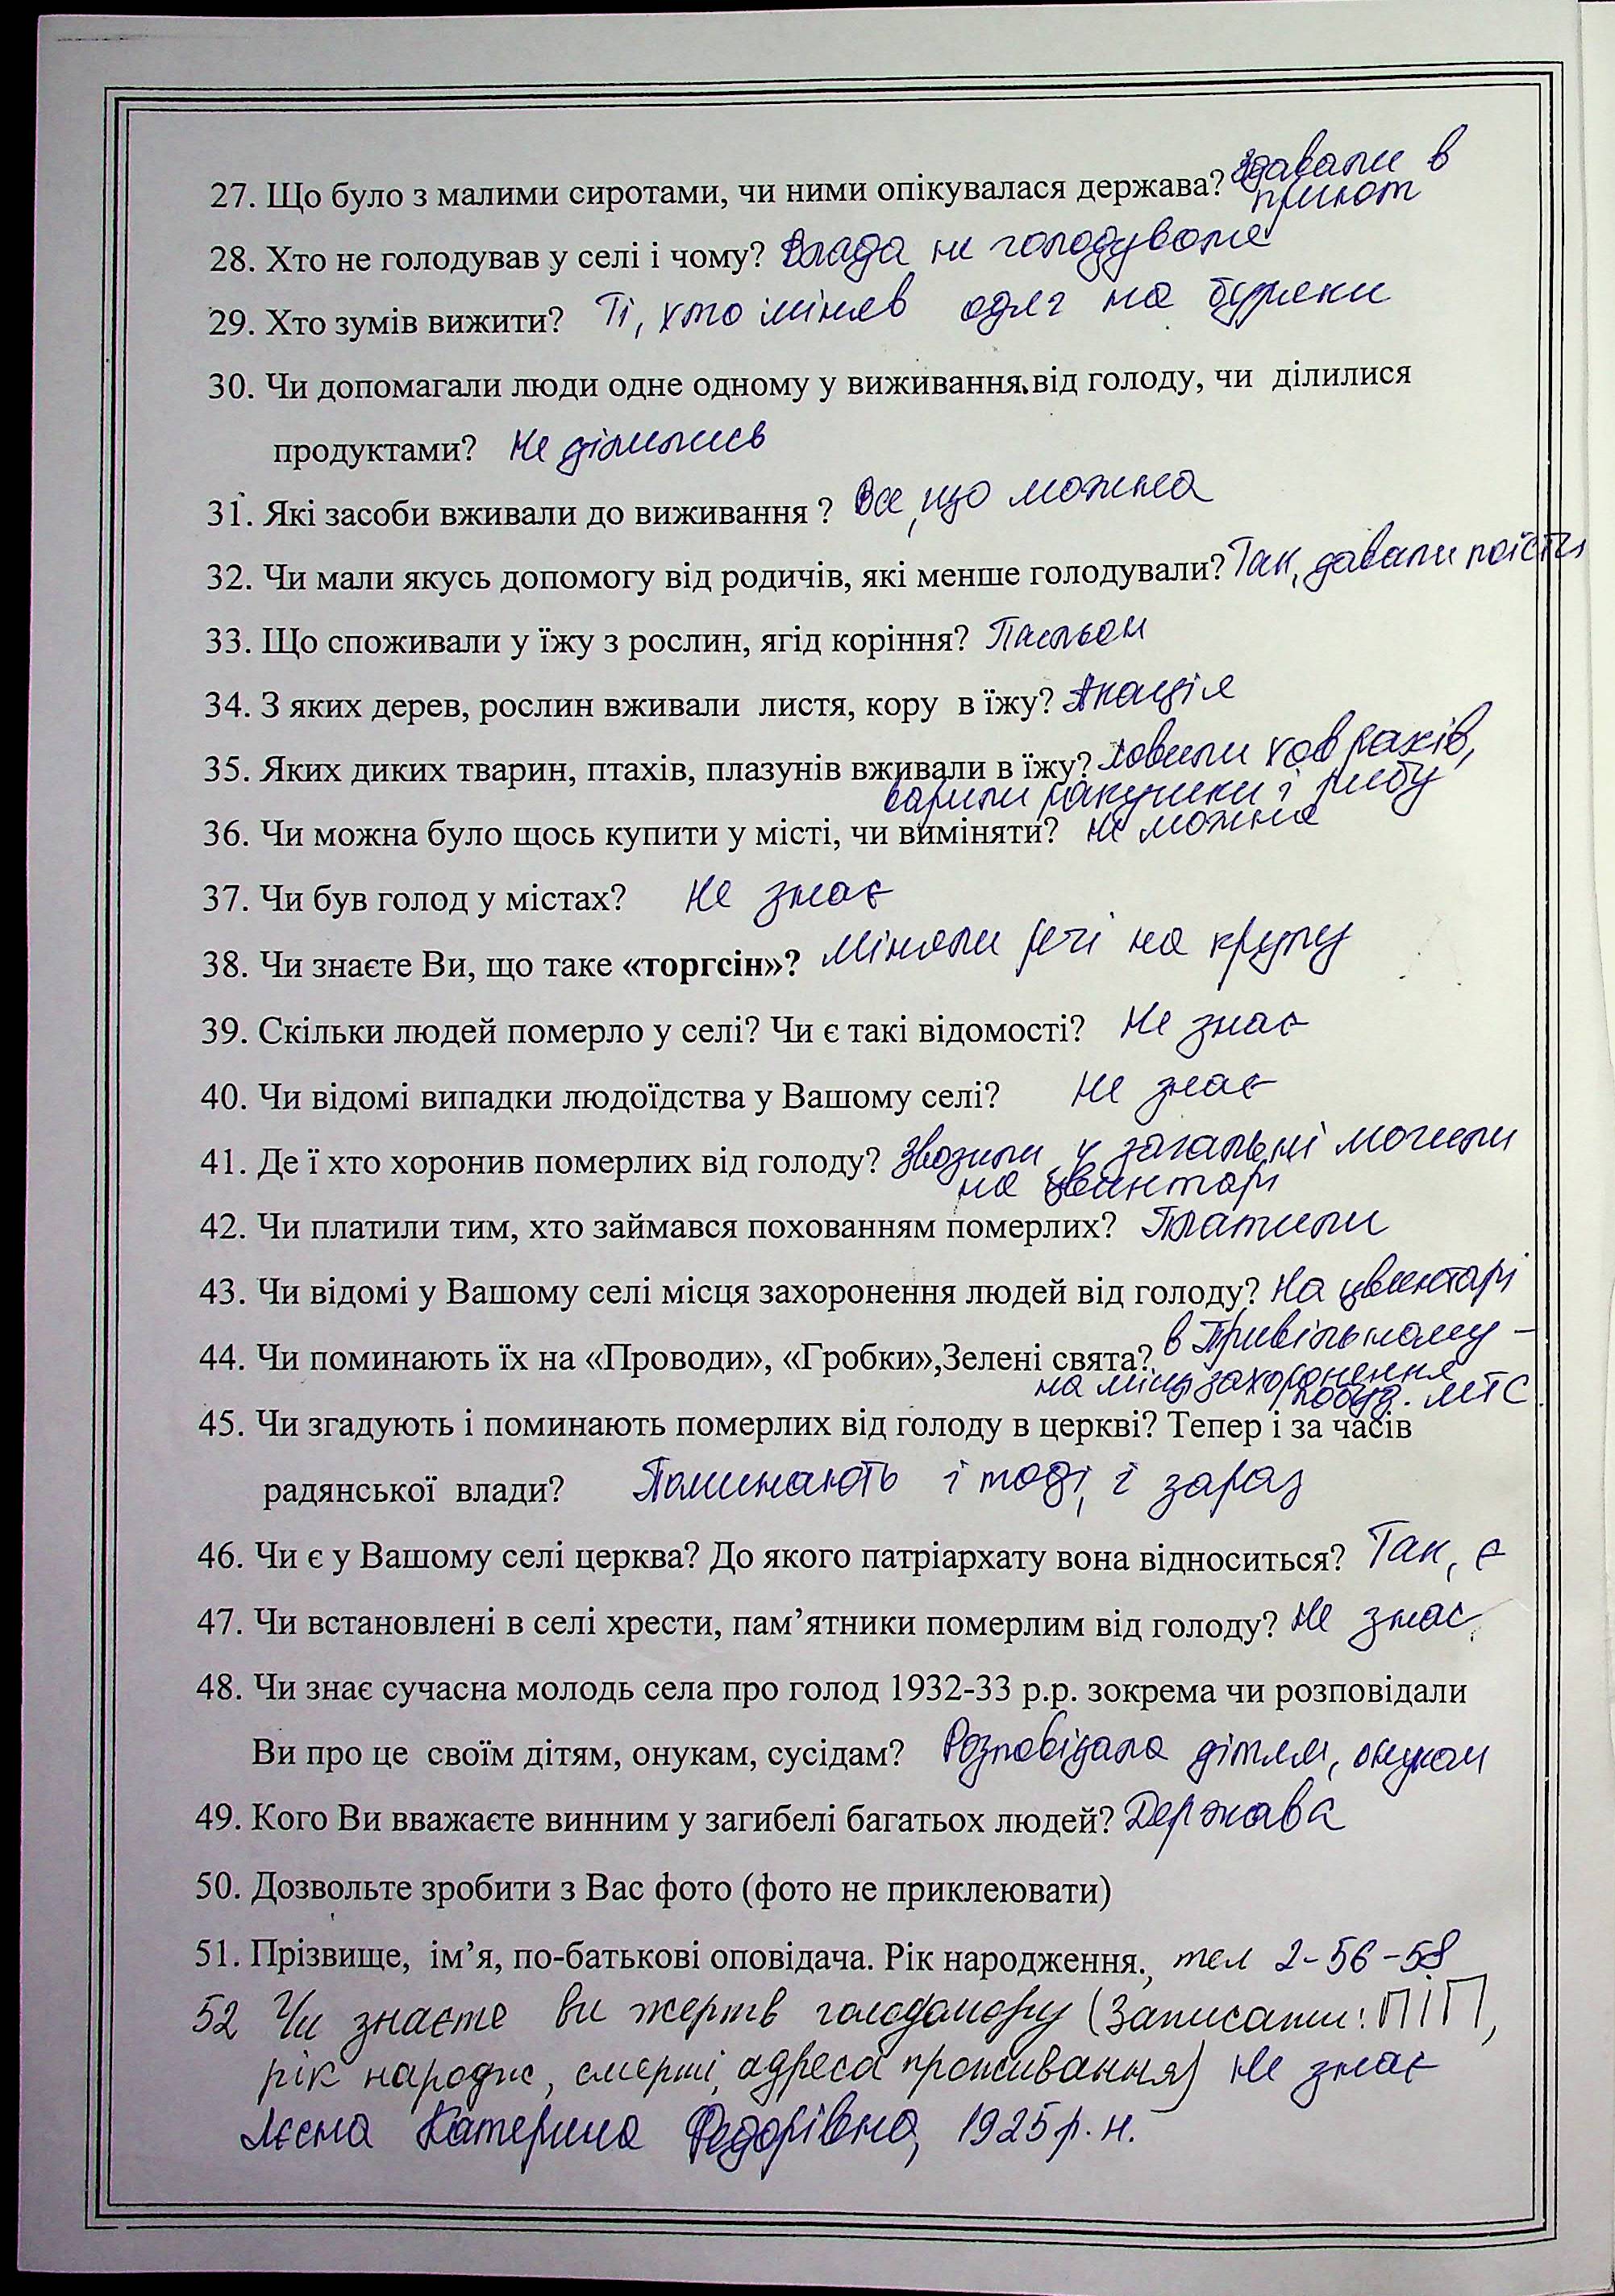 27. Що було з малими сиротами, чи ними опікувалася держава? Здавали в
приют
28. Хто не голодував у селі і чому? Влада не голодувала
29. Хто зумів вижити? Ті, хто міняв одяг на буряки
30. Чи допомагали люди одне одному у виживання від голоду, чи ділилися
продуктами? Не ділились
31. Які засоби вживали до виживання ? Все, що можна
32. Чи мали якусь допомогу від родичів, які менше голодували? Так, давали поїсти
33. Що споживали у їжу з рослин, ягід коріння? Пасльон
34. З яких дерев, рослин вживали листя, кору в їжу? Акація
35. Яких диких тварин, птахів, плазунів вживали в їжу? Ловили ховрахів,
варили ракушки і рибу
36. Чи можна було щось купити у місті, чи виміняти? не можна
37. Чи був голод у містах? Не знає
38. Чи знаєте Ви, що таке «торгсін»? Міняли речі на крупу
39. Скільки людей померло у селі? Чи є такі відомості? Не знає
40. Чи відомі випадки людоїдства у Вашому селі? Не знає
41. Де ї хто хоронив померлих від голоду? Звозили у загальні могили
на цвинтарі
42. Чи платили тим, хто займався похованням померлих? Платили
43. Чи відомі у Вашому селі місця захоронення людей від голоду? На цвинтарі
в Привільному –
44. Чи поминають їх на «Проводи», «Гробки»,Зелені свята?
на місці захоронення
побуд. МТС
45. Чи згадують і поминають померлих від голоду в церкві? Тепер і за часів
радянської влади? Поминають і тоді, і зараз
46. Чи є у Вашому селі церква? До якого патріархату вона відноситься? Так, є
47. Чи встановлені в селі хрести, пам’ятники померлим від голоду? Не знає
48. Чи знає сучасна молодь села про голод 1932-33 р.р. зокрема чи розповідали
Ви про це своїм дітям, онукам, сусідам? Розповідала дітям, онукам
49. Кого Ви вважаєте винним у загибелі багатьох людей? Держава
50. Дозвольте зробити з Вас фото (фото не приклеювати)
51. Прізвище, ім’я, по-батькові оповідача. Рік народження., тел 2-56-58
52 Чи знаєте ви жертв голодомору (Записати: ПІП,
рік народж, смерті, адреса проживання) Не знає
Катерина Федорівна, 1925 р. н.